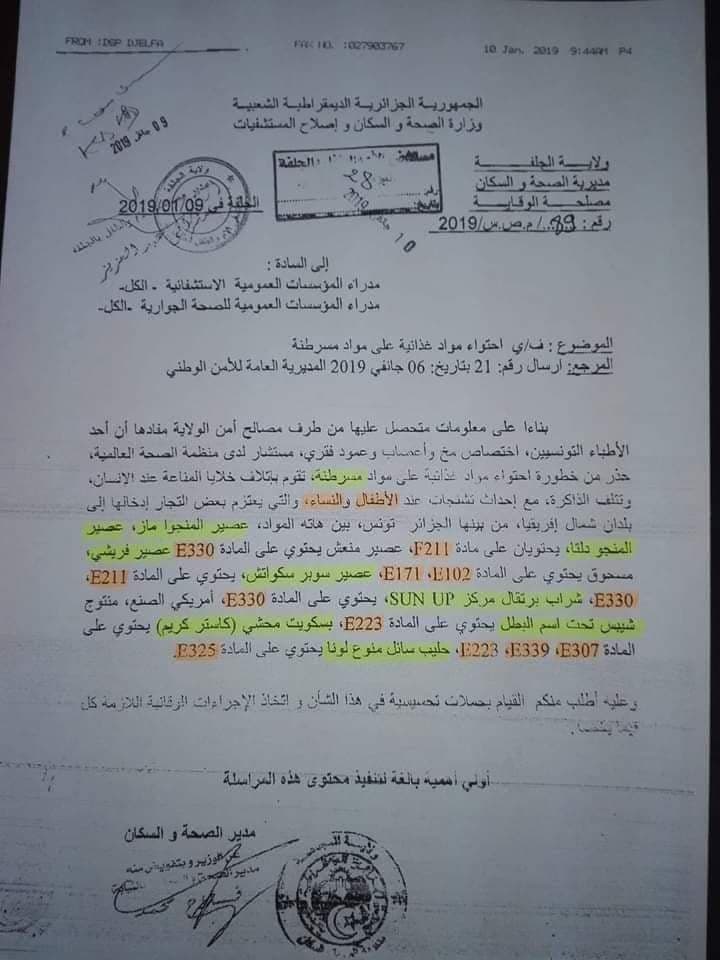 FROM :DSP DJELFA FAX NO. :027903767 10 Jan. 2019 9:44AM P4
الجمهورية الجزائرية الديمقراطية الشعبية
وزارة الصحة و السكان و إصلاح المستشفيات
09 جانفي 2019
ولاية الجلفة
مديرية الصحة و السكان
مصلحة الوقاية
رقم: 89/ م.ص.س/2019
الجلفة في 2019/01/09
28
10 جانفي 2019
إلى السادة :
مدراء المؤسسات العمومية الاستشفائية -الكل-
مدراء المؤسسات العمومية للصحة الجوارية -الكل-
الموضوع : ف/ي احتواء مواد غذائية على مواد مسرطنة
المرجع: ارسال رقم: 21 بتاريخ: 06 جانفي 2019 المديرية العامة للأمن الوطني
بناءا على معلومات متحصل عليها من طرف مصالح أمن الولاية مفادها أن أحد
الأطباء التونسيين، اختصاص مخ وأعصاب وعمود فقري، مستشار لدى منظمة الصحة العالمية،
حذر من خطورة احتواء مواد غذائية على مواد مسرطنة، تقوم بإتلاف خلايا المناعة عند الانسان،
وتتلف الذاكرة، مع إحداث تشنجات عند الأطفال والنساء، والتي يعتزم بعض التجار إدخالها إلى
بلدان شمال إفريقيا، من بينها الجزائر تونس، بين هاته المواد، عصير المنجوا ماز، عصير
المنجو دلتا، يحتويان على مادة F211، عصير منعش يحتوي على المادة E330 عصير فريشي،
مسحوق يحتوي على المادة E102، E171، عصير سوبر سكواتش، يحتوي على المادة E211،
E330، شراب برتقال مركز SUN UP، يحتوي على المادة E330، أمريكي الصنع، منتوج
شيبس تحت اسم البطل يحتوي على المادة E223، بسكويت محشي (كاستر كريم) يحتوي على
المادة E307، E339، E223، حليب سائل منوع لونا يحتوي على المادة E325.
وعليه أطلب منكم القيام بحملات تحسيسية في هذا الشأن و إتخاذ الإجراءات الوقائية اللازمة كل
فيما يخصه.
أولي أهمية بالغة لتنفيذ محتوى هذه المراسلة
مدير الصحة و السكان
عن الوزير و بتفويض منه